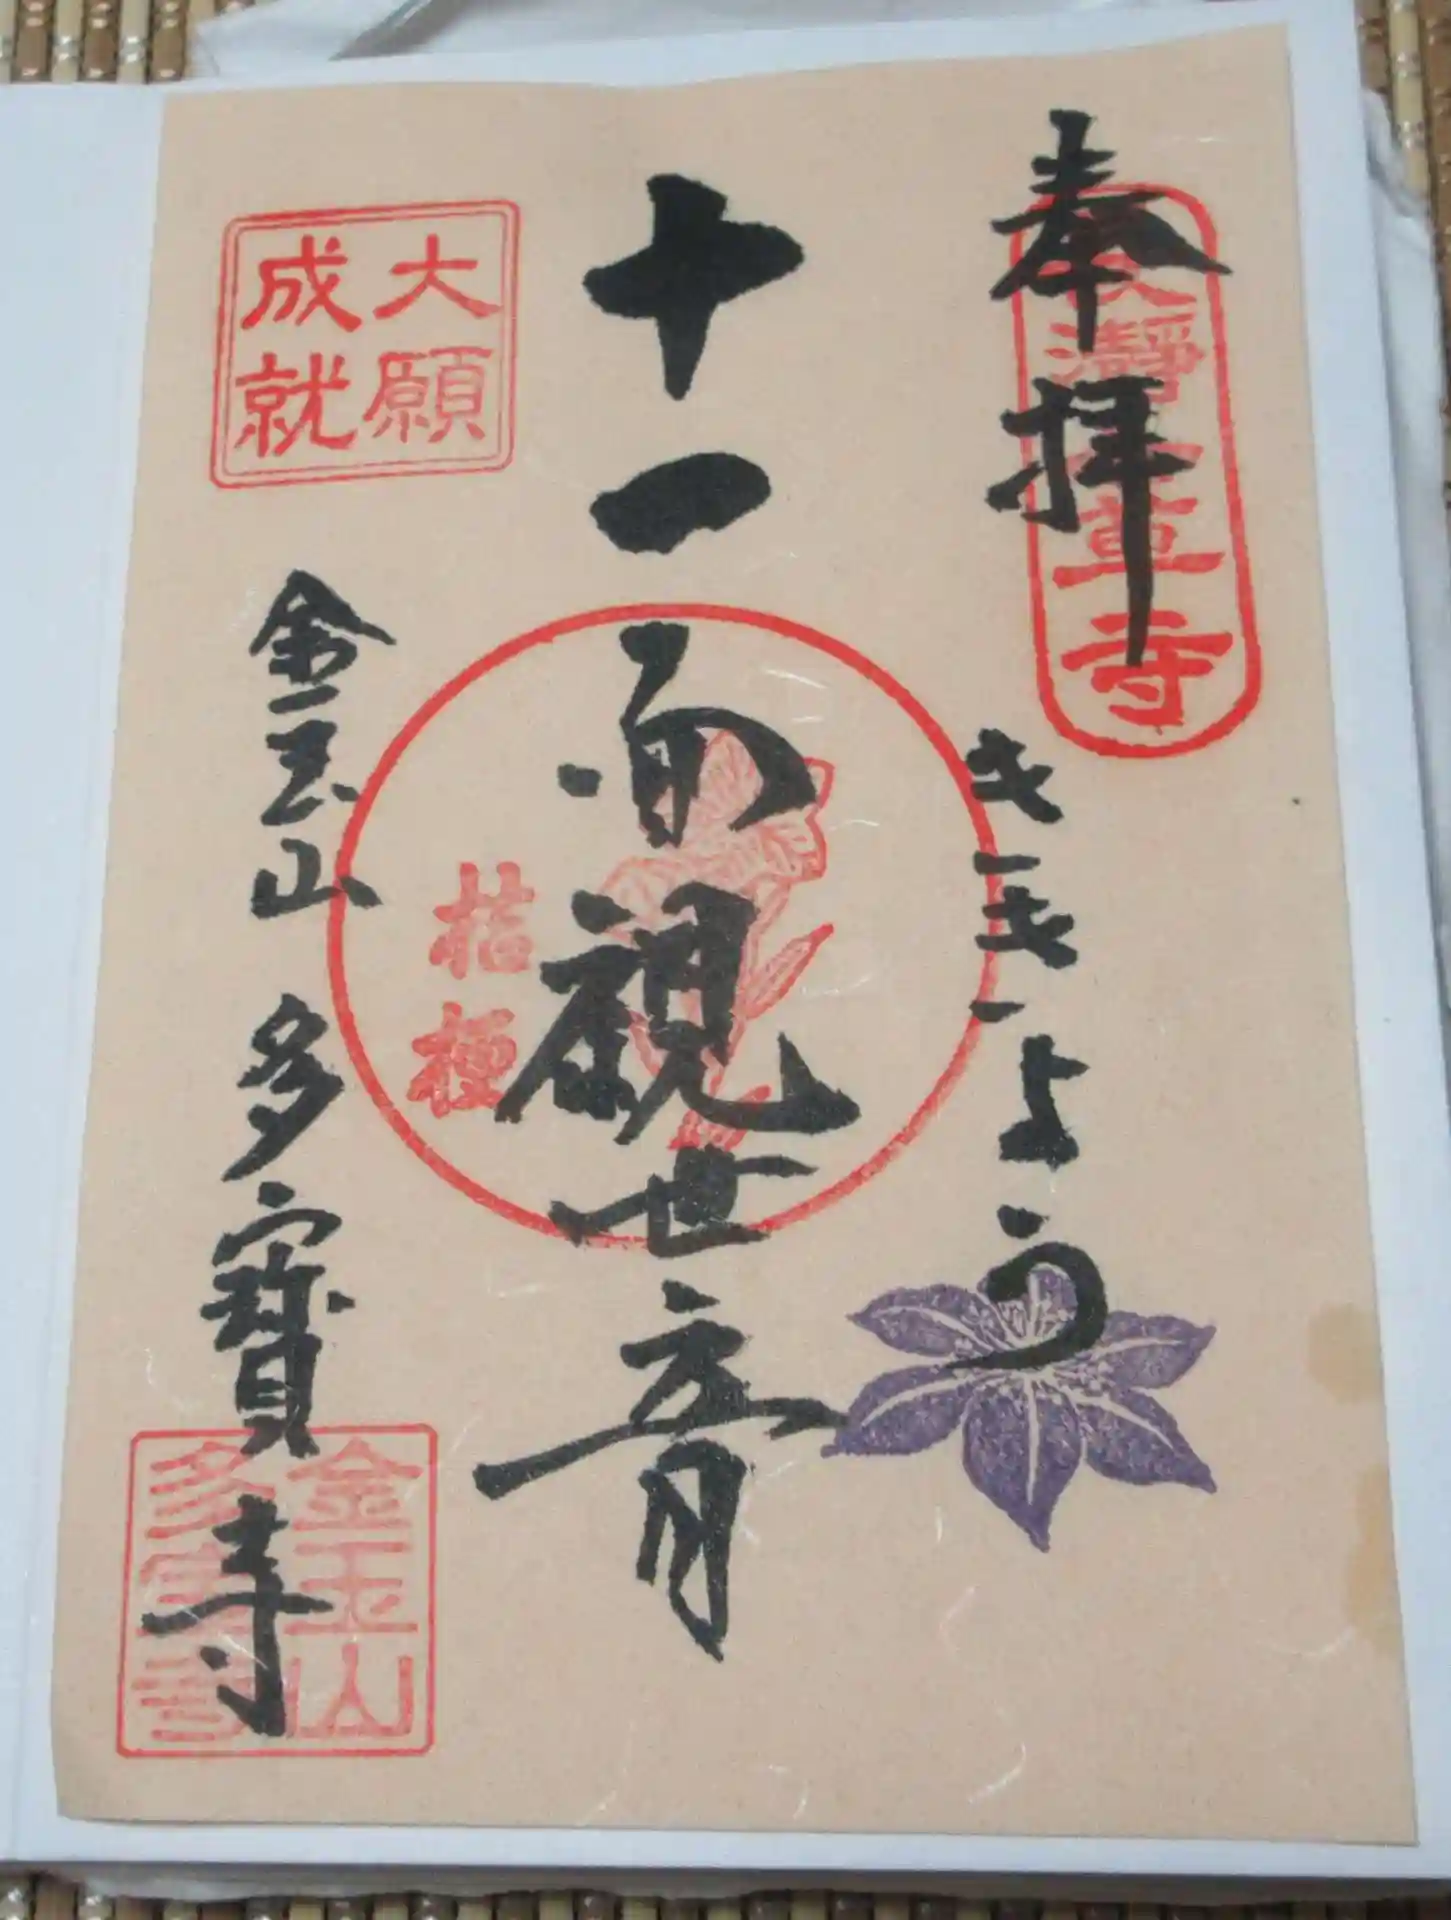 奉拝
長瀞七草寺
ききよう
十一面観世音
桔梗
大願
成就
金玉山 多寳寺
金玉山
多宝寺